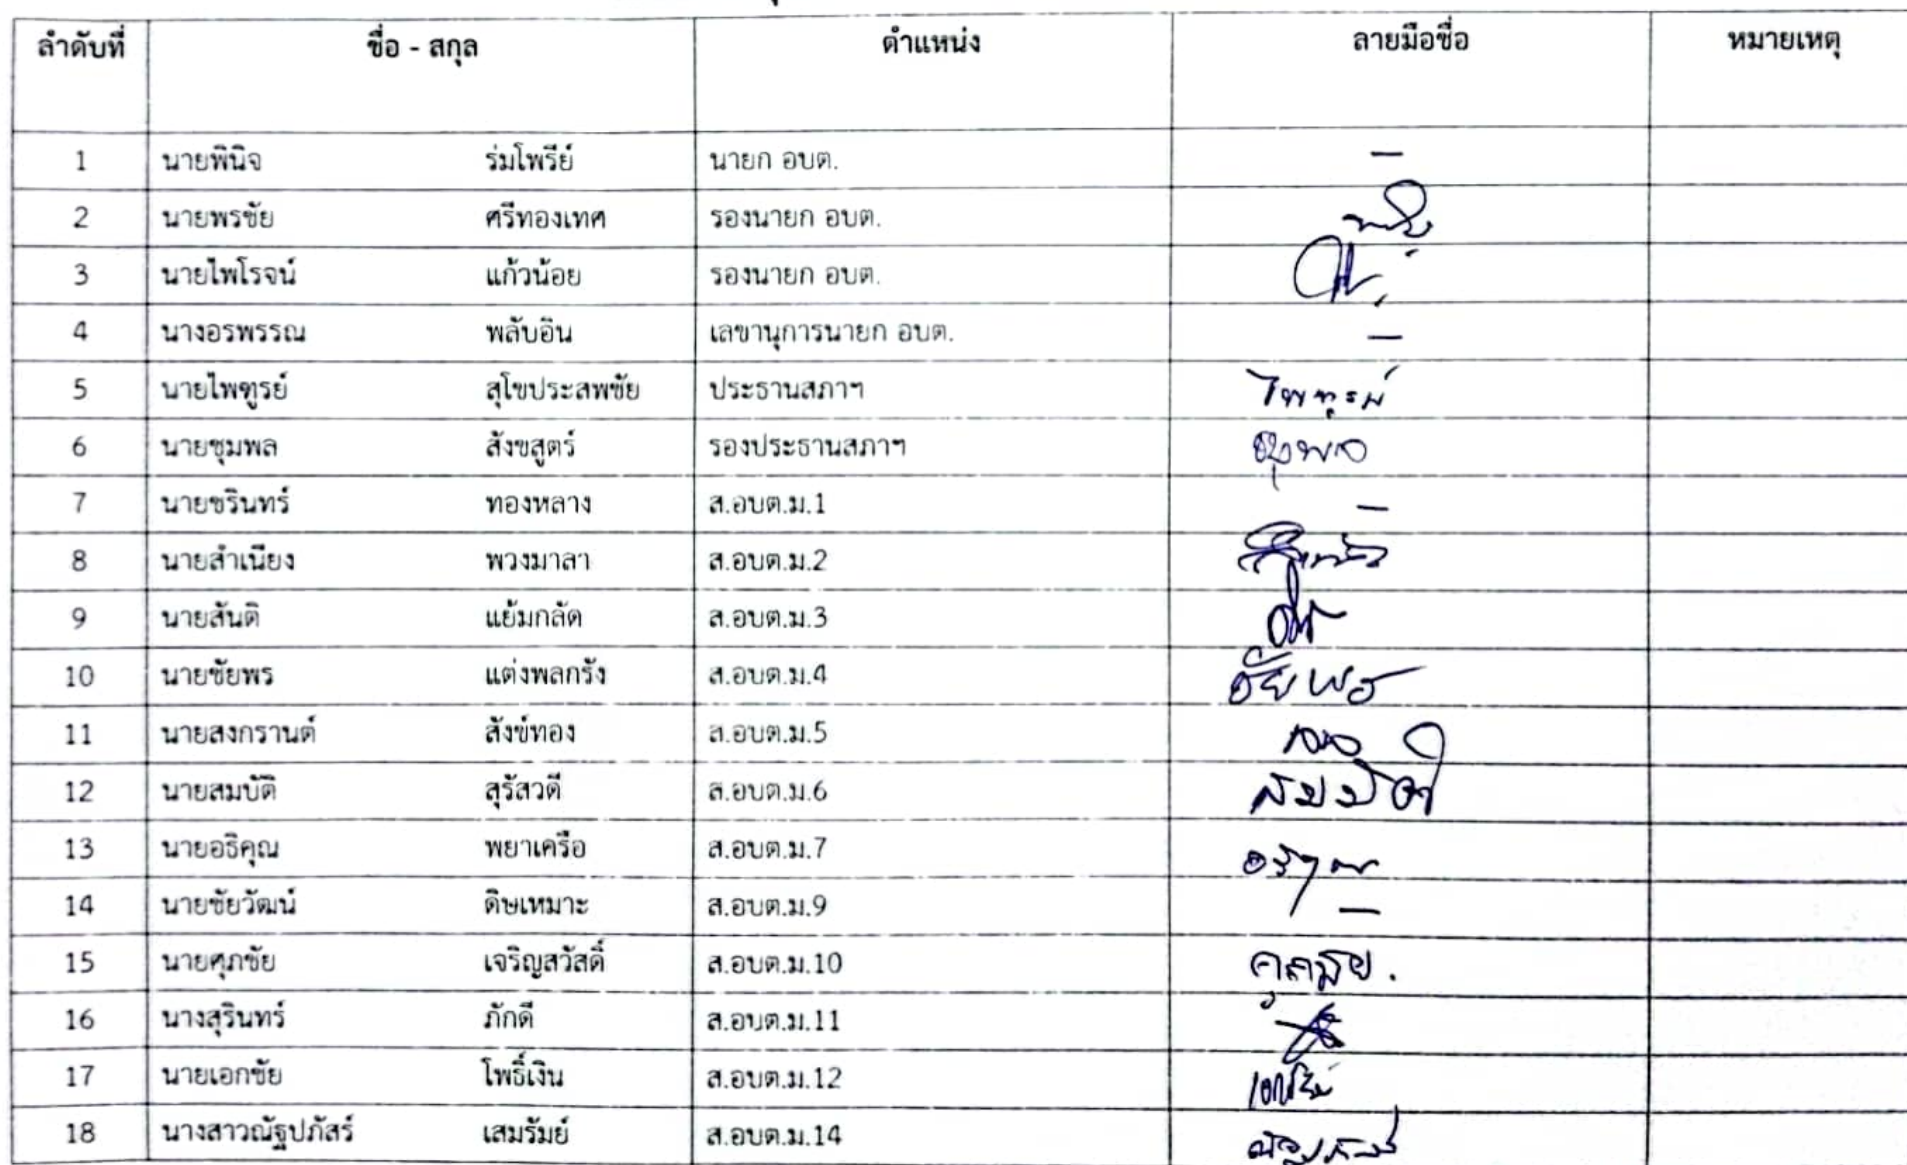 ลำดับที่ ชื่อ - สกุล ตำแหน่ง ลายมือชื่อ หมายเหตุ
1 นายพินิจ ร่มโพรีย์ นายก อบต. —
2 นายพรชัย ศรีทองเทศ รองนายก อบต.
3 นายไพโรจน์ แก้วน้อย รองนายก อบต.
4 นางอรพรรณ พลับอิน เลขานุการนายก อบต. —
5 นายไพฑูรย์ สุโขประสพชัย ประธานสภาฯ ไพฑูรย์
6 นายชุมพล สังขสูตร์ รองประธานสภาฯ ชุมพล
7 นายชรินทร์ ทองหลาง ส.อบต.ม.1 —
8 นายสำเนียง พวงมาลา ส.อบต.ม.2
9 นายสันติ แย้มกลัด ส.อบต.ม.3
10 นายชัยพร แต่งพลกรัง ส.อบต.ม.4 ชัยพร
11 นายสงกรานต์ สังข์ทอง ส.อบต.ม.5
12 นายสมบัติ สุรัสวดี ส.อบต.ม.6 สมบัติ
13 นายอธิคุณ พยาเครือ ส.อบต.ม.7 อธิคุณ
14 นายชัยวัฒน์ ดิษเหมาะ ส.อบต.ม.9 —
15 นายศุภชัย เจริญสวัสดิ์ ส.อบต.ม.10 ศุภชัย.
16 นางสุรินทร์ ภักดี ส.อบต.ม.11
17 นายเอกชัย โพธิ์เงิน ส.อบต.ม.12 เอกชัย
18 นางสาวณัฐปภัสร์ เสมรัมย์ ส.อบต.ม.14 ณัฐปภัสร์